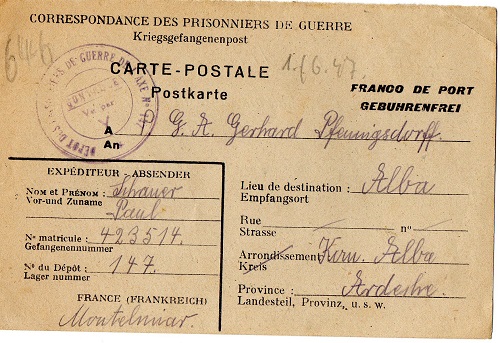 CORRESPONDANCE DES PRISONNIERS DE GUERRE
Kriegsgefangenenpost
1./6.47.
CARTE-POSTALE
Postkarte
FRANCO DE PORT
GEBUHRENFREI
DE GUERRE
Vu par
A G. A. Gerhard Pfennigsdorff.
An
EXPÉDITEUR - ABSENDER
NOM et PRÉNOM : Schauer
Vor-und Zuname Paul
N° matricule : 423514.
Gefangenennummer
N° du Dépôt : 147.
Lager nummer
FRANCE (FRANKREICH)
Montelimar.
Lieu de destination : Alba
Empfangsort
Rue n°
Strasse
Arrondissement Alba
Kreis
Province : Ardeche.
Landesteil, Provinz, u. s. w.